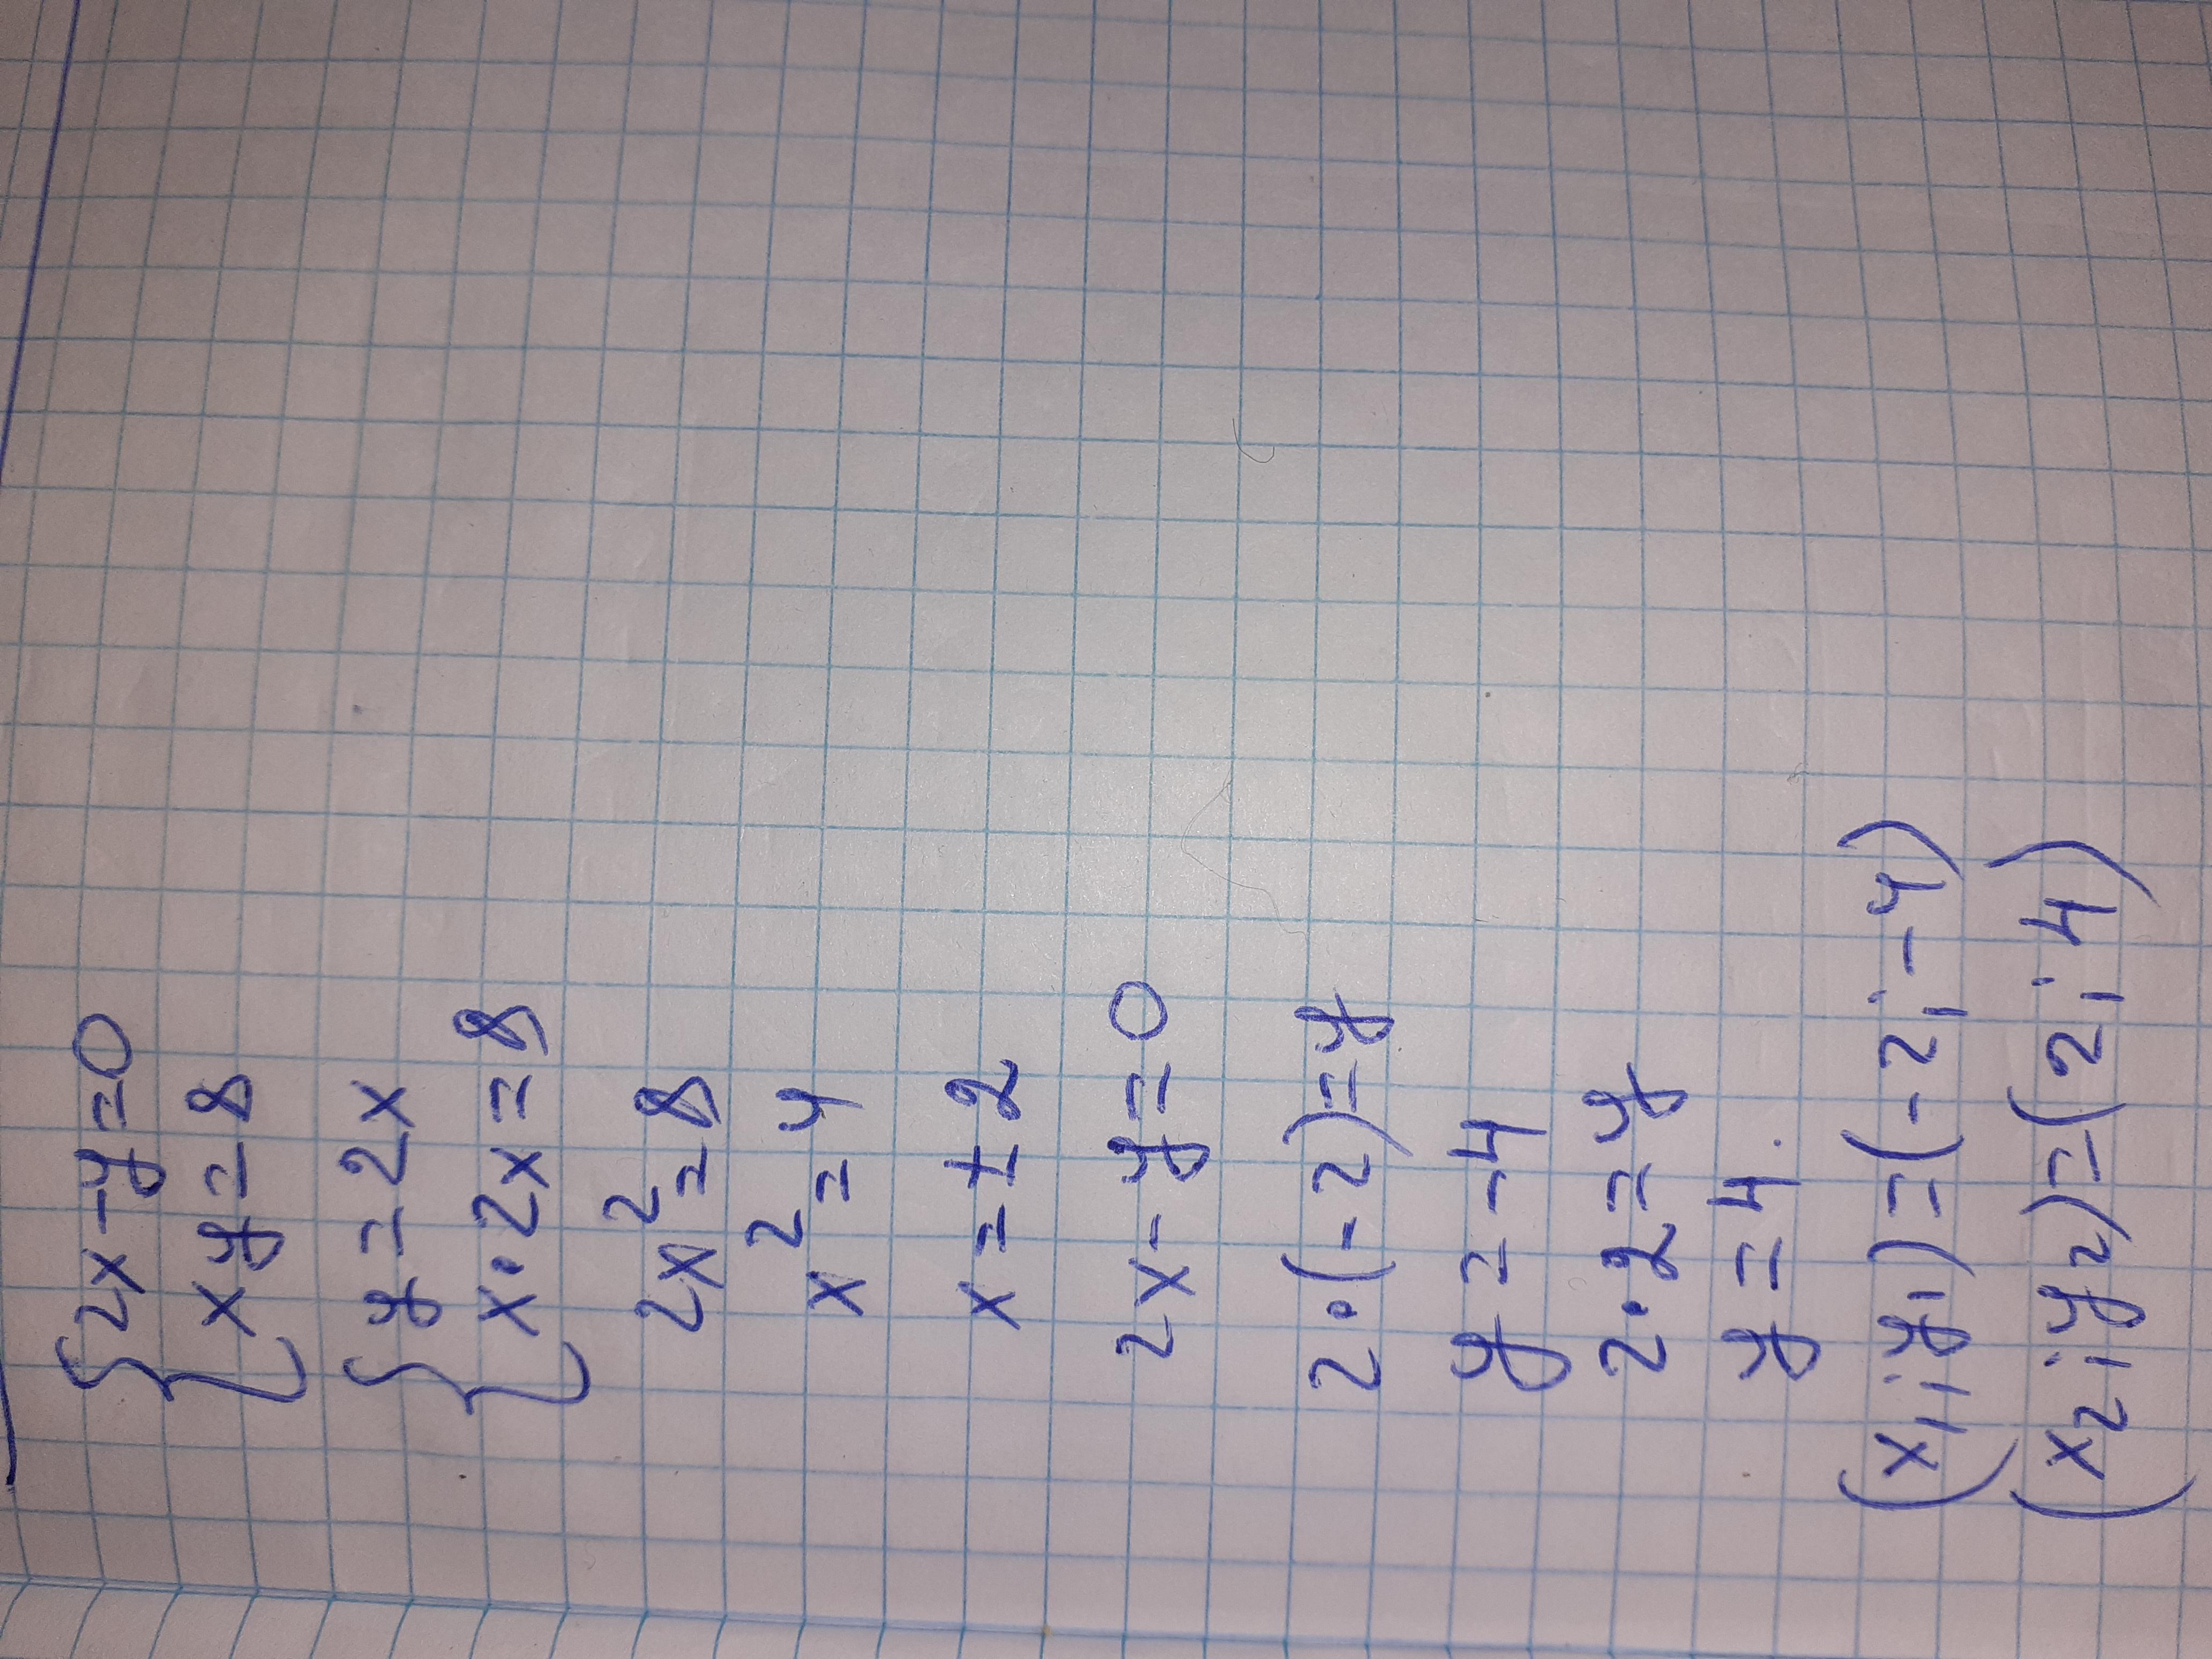 {2x-y=0
{xy=8
{y=2x
{x·2x=8
2x²=8
x²=4
x=±2
2x-y=0
2·(-2)=y
y=-4
2·2=y
y=4.
(x₁;y₁)=(-2;-4)
(x₂;y₂)=(2;4)